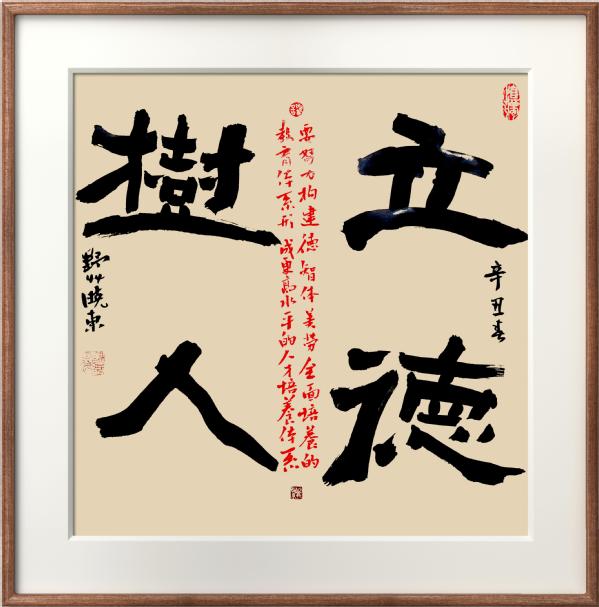 立德
樹人
辛丑春
要努力构建德智体美劳全面培養的
教育体系形成更高水平的人才培養体系
野艸曉東